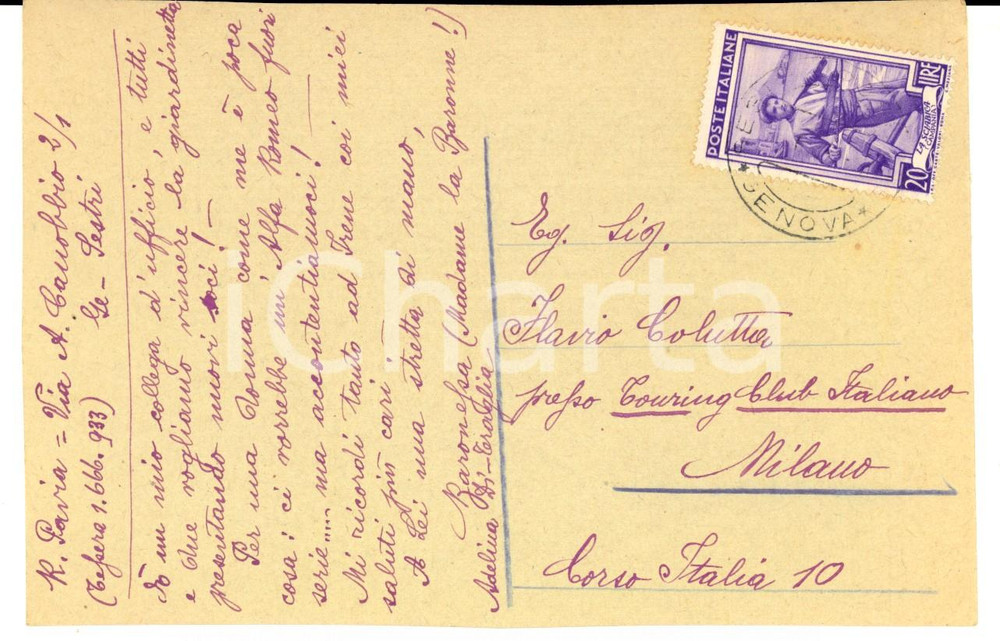 R. Pavia = Via A. Canobbio 2/1
(Tessera 1.666.933) Ge - Sestri
mio collega d'ufficio, e tutti
e due vogliamo vincere la giardinetta
presentando nuovi soci! —
Per una donna come me è poca
cosa; ci vorrebbe un' Alfa Romeo fuori
serie.... ma accontentiamoci!
Mi ricordi tanto ad Irene coi miei
saluti più cari;
A Lei una stretta di mano,
Baronessa (Madame la Baronne!)
Adelina Di-
POSTE ITALIANE
LIRE
20
LA SCIABICA
CAMPANIA
GENOVA
Eg. Sig.
Flavio Colutta
presso Touring Club Italiano
Milano
Corso Italia 10
iCharta